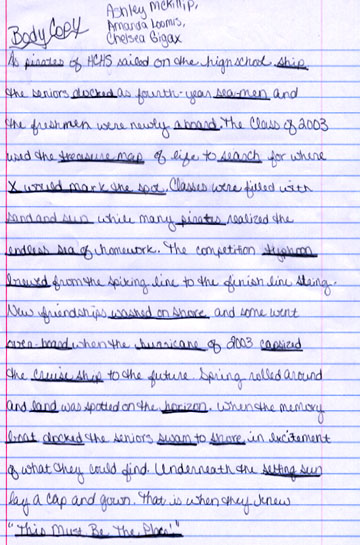 Ashley McKillip,
Amanda Loomis,
Chelsea Gigax
Body Copy
As pirates of HCHS sailed on the high school ship
the seniors docked as fourth-year sea-men and
the freshmen were newly aboard. The Class of 2003
used the treasure map of life to search for where
X would mark the spot. Classes were filled with
sand and sun while many pirates realized the
endless sea of homework. The competition typhoon
brewed from the spiking line to the finish line string.
New friendships washed on shore and some went
over-board when the hurricane of 2003 capsized
the cruise ship to the future. Spring rolled around
and land was spotted on the horizon. When the memory
boat docked the seniors swam to shore in excitement
of what they could find. Underneath the setting sun
lay a cap and gown. That is when they knew
"This Must Be The Place!"